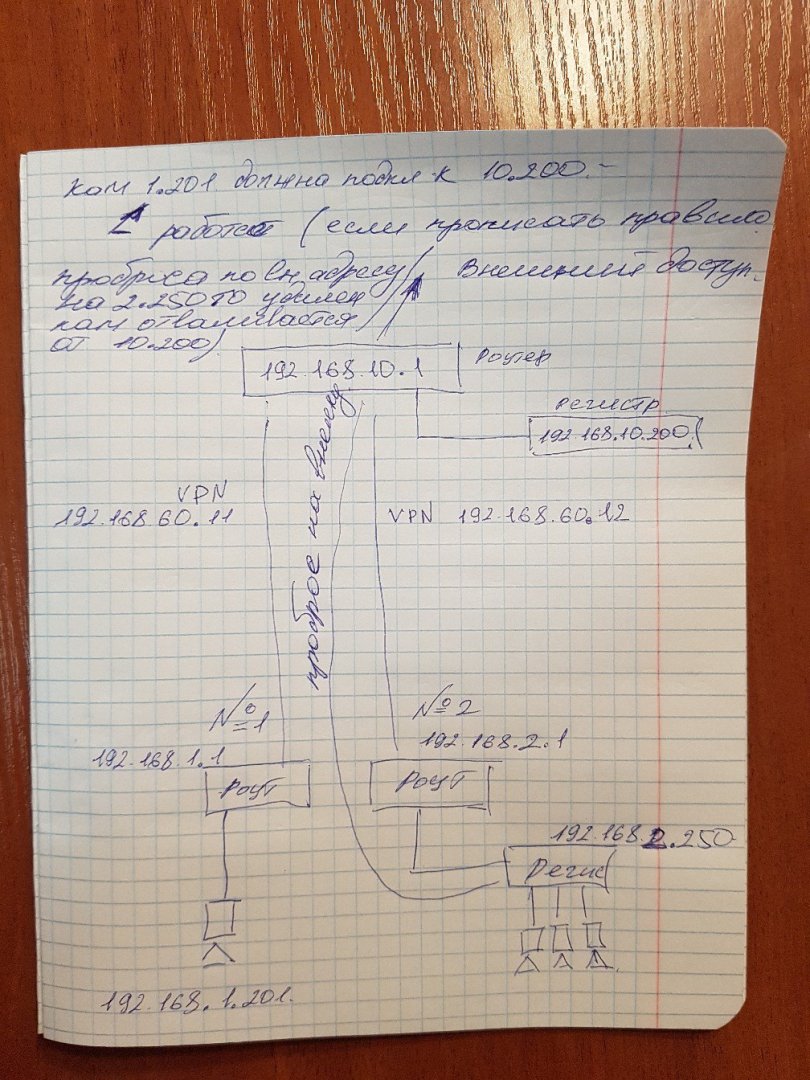 Кам 1.201 должна подкл к 10.200.-
1 работает (если прописать правило
проброса по вн. адресу
на 2.250 то удален
кам отваливается
от 10.200)
Внешний доступ.
192.168.10.1
Роутер
Регистр
192.168.10.200
VPN
192.168.60.11
VPN 192.168.60.12
проброс на внешку
№1
192.168.1.1
Роут
№2
192.168.2.1
Роут
192.168.2.250
Регис
192.168.1.201.